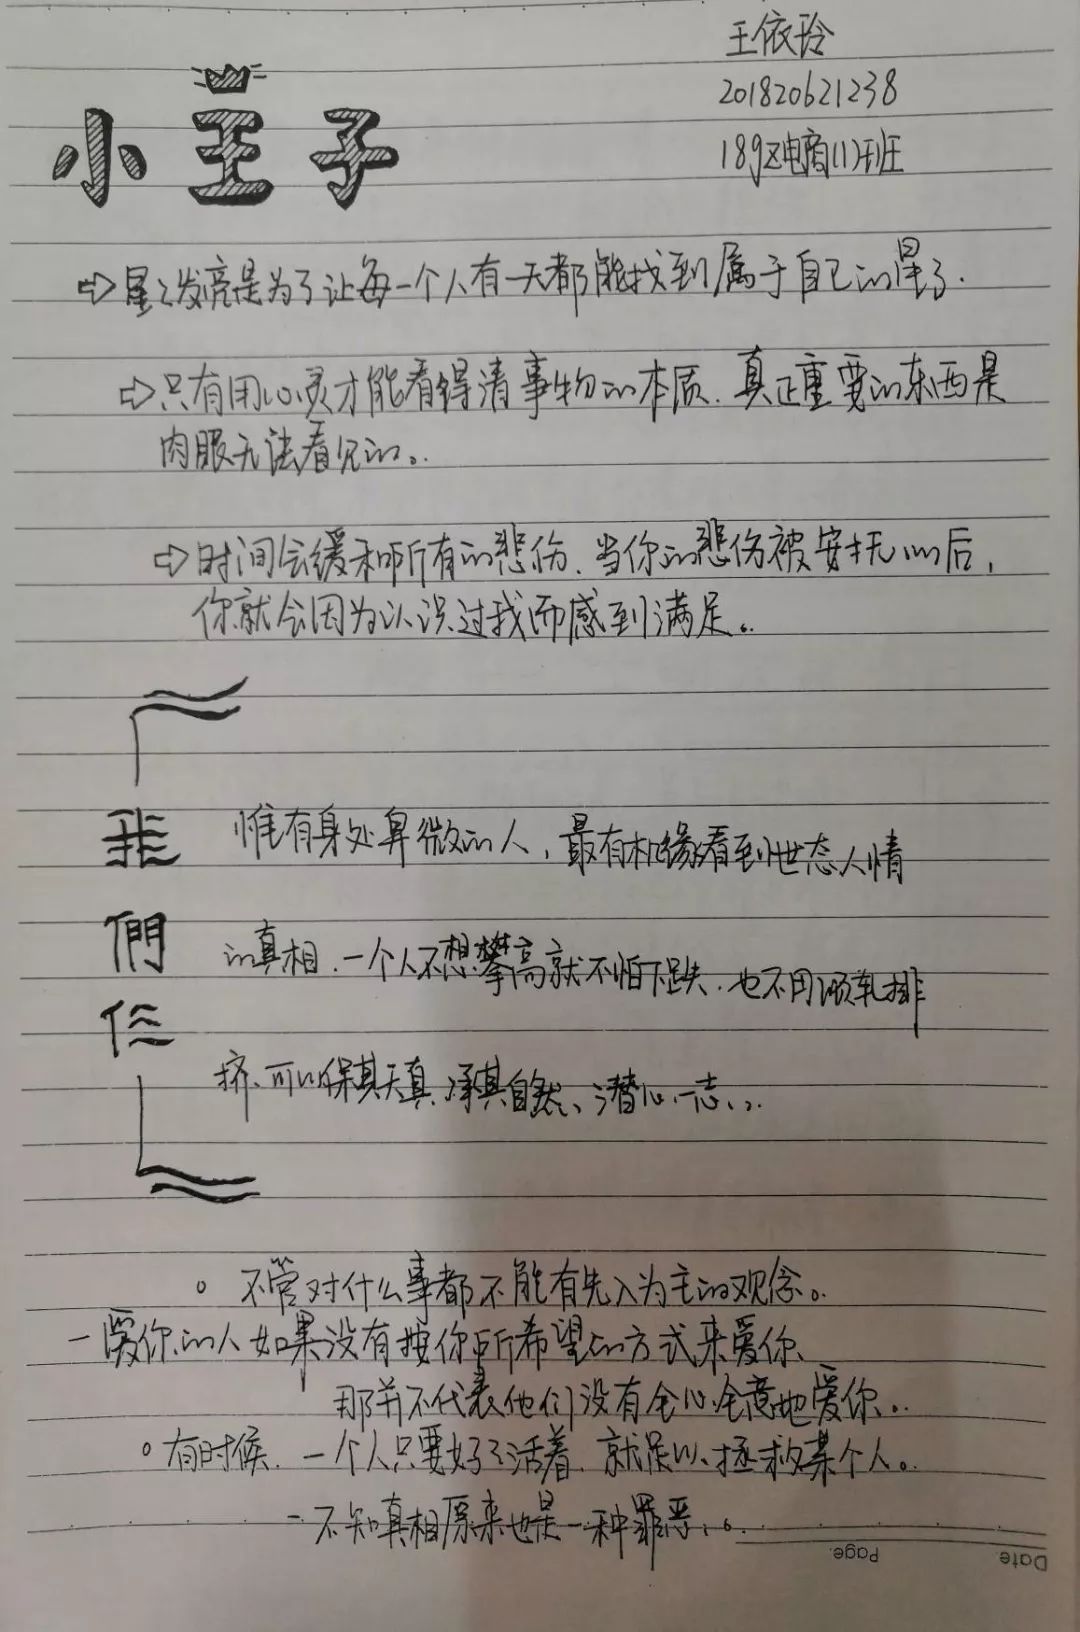 王依玲
201820621238
18gz电商(1)班
小王子
⇨星々发亮是为了让每一个人有一天都能找到属于自己的星星.
⇨只有用心灵才能看得清事物的本质.真正重要的东西是
肉眼无法看见的。
⇨时间会缓和所有的悲伤.当你的悲伤被安抚以后,
你就会因为认识过我而感到满足。
我
們
仨
惟有身处卑微的人,最有机缘看到世态人情
的真相.一个人不想攀高就不怕下跌.也不用倾轧排
挤、可以保其天真、承其自然、潜心一志、。
。不管对什么事都不能有先入为主的观念。
-爱你的人如果没有按你所希望的方式来爱你、
那并不代表他们没有全心全意地爱你。
。有时候.一个人只要好々活着.就足以拯救某个人。
-不知真相原来也是一种罪恶、。
Page.
Date